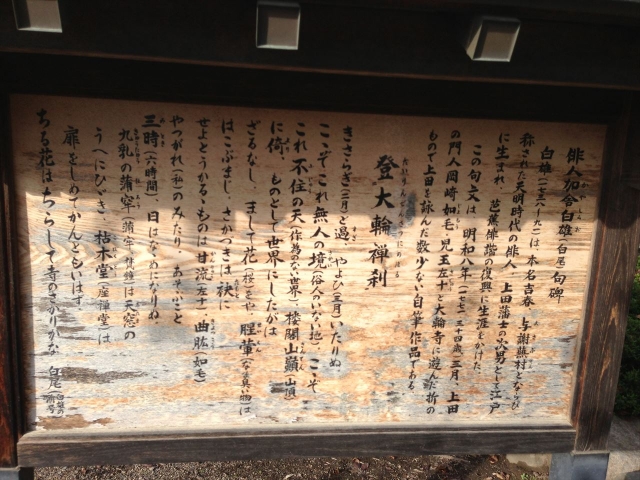 俳人加舎白雄(白尾)句碑
白雄(一七三八〜九一)は、本名吉春 与謝蕪村とならび
称された天明時代の俳人 上田藩士の次男として江戸
に生まれ、芭蕉俳諧の復興に生涯をかけた。
この句文は、明和八年(一七七一 三四歳)三月、上田
の門人岡崎如毛、児玉左十と大輪寺に遊んだ折の
もので上田を詠んだ数少ない自筆作品である。
登大輪禅刹
きさらぎ(二月)と過、やよひ(三月)いたりぬ
こゝぞこれ無人の境(俗人のいない地)、こゝぞ
これ不住の天(作為のない世界)、楼閣山顛(山頂)
に倚、ものとして世界にしたがは
ざるなし、まして花(桜)をや、腥葷(なま臭い物)は
はこぶまじ、さかづきは袂に
せよとうかるゝものは甘流(左十)、曲肱(如毛)
やつがれ(私)のみたり、あそぶこと
三時(六時間)、日はなゝめになりぬ
九乳の蒲牢(蒲牢・梵鐘)は天窓の
うへにひゞき、枯木堂(座禅堂)は
扉をしめてかんともいはず
ちる花はちらして寺のさかりかな 白尾(白雄の前号)